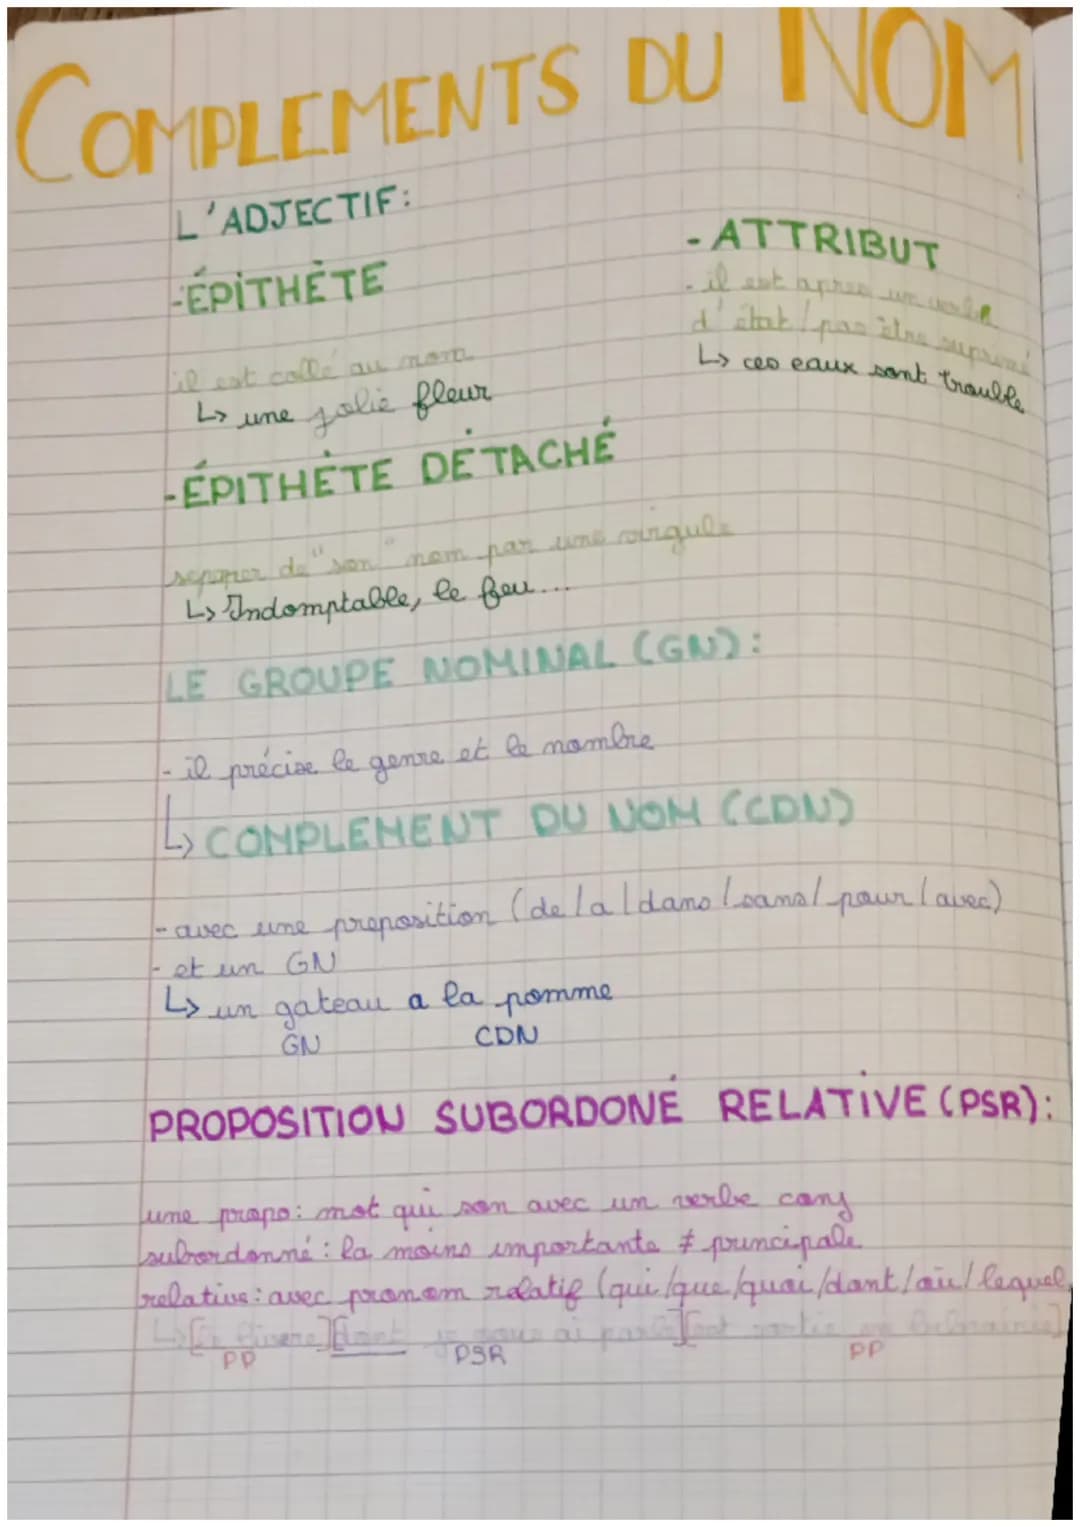 COMPLEMENTS DU NOM
L'ADJECTIF:
-ÉPITHÈTE
il est collé au nom
↳ une jolie fleur
- ATTRIBUT
- il est apres un verbe
d'état / pas être suprimé
↳ ces eaux sont trouble
-ÉPITHÉTE DÉTACHÉ
separer de "son" nom par une virgule
↳ Indomptable, le feu...
LE GROUPE NOMINAL (GN):
- il précise le genre et le nombre
↳ COMPLEMENT DU NOM (CDN)
- avec une preposition (de/a/dans/sans/pour/avec)
- et un GN
↳ un gateau a la pomme
GN CDN
PROPOSITION SUBORDONÉ RELATIVE (PSR):
une propo: mot qui son avec un verbe conj
subordonné: la moins importante ≠ principale
relative: avec pronom relatif (qui/que/quoi/dont/où/lequel
↳ [ ][dont je vous ai parlé][ont
PP PSR PP